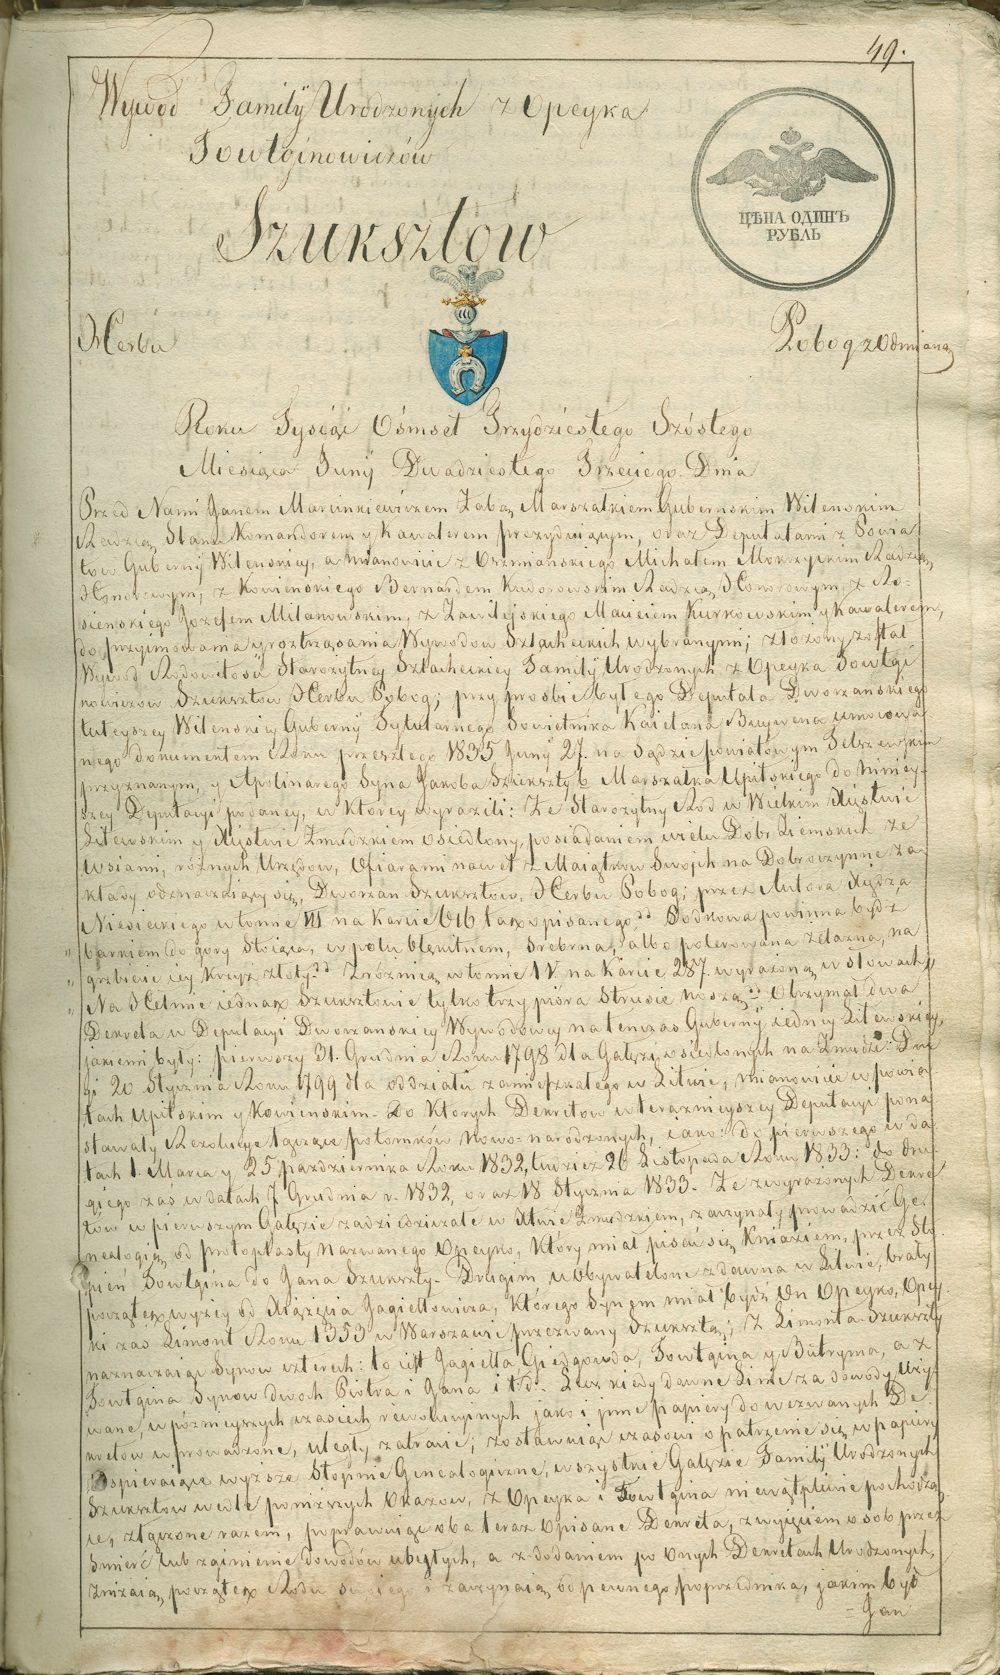 49.
Wywod Familÿ Urodzonych z Opeyka
Towtginowiczów
ЦѢНА ОДИНЪ
РУБЛЬ
Szuksztow
Herbu
Pobog z Odmianą
Roku Tysiąć Ośmset Trzydziestego Szóstego
Miesiąca Junÿ Dwadziestego Trzeciego Dnia
Przed Nami Janem Marcinkiewiczem Żabą Marszałkiem Gubernskim Wilenskim
Radzcą Stanu Komandorem y Kawalerem prezyduiącym, oraz Deputatami z Powia-
tow Gubernÿ Wilenskiey, a mianowicie z Oszmianskiego Michałem Mokrzyckim Radzcą
Honorowym, z Kowienskiego Bernardem Radzcą Honorowym, z Ro-
sienskiego Jozefem Milanowskim, z Zawileyskiego Macieiem Kurkowskim y Kawalerem,
do przyimowania y roztrząsania Wywodow Szlacheckich wybranymi; złożony został
Wywod Rodowitości Starożytney Szlacheckiey Familÿ Urodzonych z Opeyka Towtgi
nowiczow Szuksztow Herbu Pobog; przy prosbie byłego Deputata Dworzanskiego
tuteyszey Wilenskiey Gubernÿ Tytularnego Sowietnika Kaietana umocowa
nego dokumentem Roku przeszłego 1835 Junÿ 27. na Sądzie powiatowym Telszewskim
przyznanym, y Apolinarego Syna Jakoba Szukszty b Marszałka Upitskiego do niniey-
szey Deputacÿi podaney, w ktorey wyrazili: Że Starożytny Rod w Wielkim Xięstwie
Litewskim y Xięstwie Żmudzkiem osiedlony, posiadaniem wielu Dobr Ziemskich ze
wsiami, różnych Urzędow, Ofiarami nawet z Maiątkow Swoich na Dobroczynne za
kłady odznaczaiący się, Dworzan Szuksztow, Herbu Pobog; przez Autora Xiędza
Niesieckiego w tomie III na karcie 616 tak opisanego: "Podkowa powinna bydź
„ barkiem do gory Stoiąca, w polu błękitnem, Srebrna, albo polerowana żelazna, na
„ grzbiecie iey krzyż złoty" Z różnicą w tomie IV na karcie 287. wyrażoną w słowach „
„ Na Hełmie iednak Szuksztowie tylko trzy pióra Strusie noszą" Otrzymał dwa
Dekreta w Deputacÿi Dworzanskiey Wywodowey na tenczas Gubernÿ iedney Litewskiey,
jakiemi były: pierwszy 31. Grudnia Roku 1798 dla Gałęzi osiedlonych na Żmudzi: Dru
gi 20 Stycznia Roku 1799 dla oddziału zamieszkałego w Litwie, mianowicie w powia
tach Upitskim y Kowienskim. Do ktorych Dekretow w teraznieyszey Deputacyi pona
stawały Rezolucye łączące potomków Nowo-narodzonych, iako: do pierwszego w da
tach 1. Marca y 25 pazdziernika Roku 1832, tudzież 26 Listopada Roku 1833: do dru-
giego zas w datach 7 Grudnia r. 1832, oraz 18 Stycznia 1833. Ze zwyrażonych Dekre
tów w pierwszym Gałęzie zadziedziczałe w Xtwie Żmudzkiem, zaczynały prowadzić Ge-
nealogią od protoplasty Nazwanego Opeyko, ktory miał pisać się Kniaziem, przez Sto
pień Towtgina do Jana Szukszty. Drugim Obywatelone zdawna w Litwie, brały
początek wyżey od Xiążęcia Jagiełłowicza, ktorego Synem miał bydź On Opeyko, Opey-
ki zas Limont Roku 1353 w Warszawie przezwany Szuksztą; z Limonta Szukszty
naznaczaiąc Synow czterech: to iest Jagiełła Giedgowda, Towtgina y Butryma, a z
Towtgina Synow dwoch Piotra i Jana i t:d. Lecz kiedy dawne Linie za dowody uży-
wane, w poznieyszych czasiech rewolucyinych jako i jnne papiery do wezwanych De
kretow wprowadzone, uległy zatracie; zostawuiąc czasowi opatrzenie się w papiery
Wspieraiące wyższe Stopnie Genealogiczne, wszystkie Gałęzie Familÿ Urodzonych
Szuksztow wedle poniższych okazow, z Opeyka i Towtgina niewątpliwie pochodzą-
ce, złączone razem, poprawuiąc oba teraz opisane Dekreta, z wyięciem osob przez
Śmierć lub zaginienie dowodów ubyłych, a z dodaniem po onych Dekretach Urodzonych,
Zniżaią początek Rodu swoiego i zaczynaią od pewnego poprzednika, jakim był
= Jan